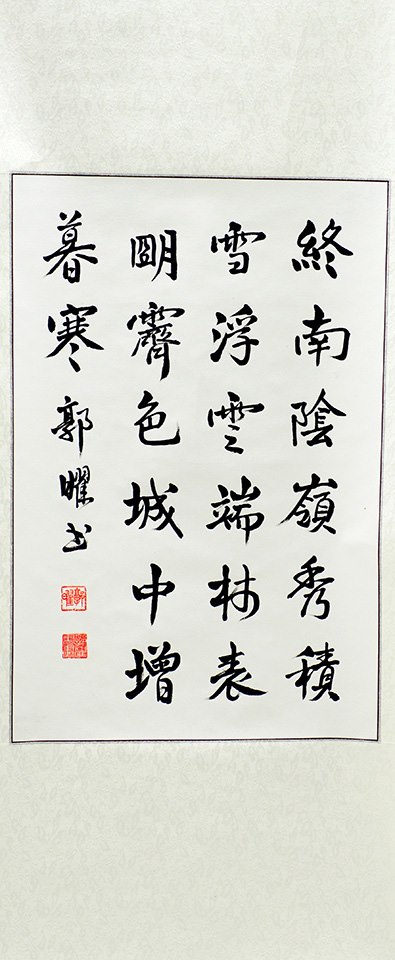 終南陰嶺秀積
雪浮雲端林表
朙霽色城中增
暮寒郭曜书